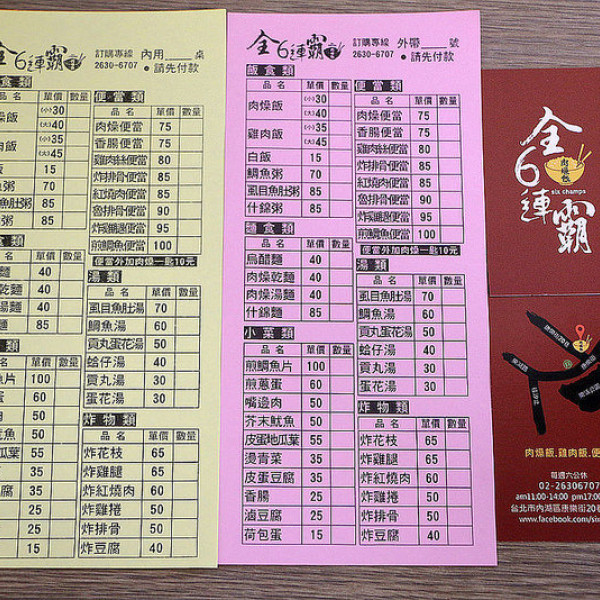 全6連霸
訂購專線 2630-6707
內用____桌
•請先付款
食類
品名 單價 數量
燥飯 (小)30
(大)40
肉飯 (小)35
(大)45
飯 15
魚粥 70
目魚肚粥 85
粥 85
食類
品名 單價 數量
麵 40
乾麵 40
湯麵 40
麵 85
類
品名 單價 數量
魚片 100
蛋 60
肉 50
魷魚 50
瓜葉 55
菜 35
豆腐 35
25
腐 25
蛋 15
便當類
品名 單價 數量
肉燥便當 75
香腸便當 75
雞肉絲便當 80
炸排骨便當 90
紅燒肉便當 90
魯排骨便當 90
炸雞腿便當 95
煎鯛魚便當 100
便當外加肉燥一匙10元
湯類
品名 單價 數量
虱目魚肚湯 70
鯛魚湯 60
貢丸蛋花湯 50
蛤仔湯 40
貢丸湯 30
蛋花湯 30
炸物類
品名 單價 數量
炸花枝 65
炸雞腿 65
炸紅燒肉 60
炸雞捲 50
炸排骨 50
炸豆腐 40
全6連霸
訂購專線 2630-6707
外帶____號
•請先付款
飯食類
品名 單價 數量
肉燥飯 (小)30
(大)40
雞肉飯 (小)35
(大)45
白飯 15
鯛魚粥 70
虱目魚肚粥 85
什錦粥 85
麵食類
品名 單價 數量
烏醋麵 40
肉燥乾麵 40
肉燥湯麵 40
什錦麵 85
小菜類
品名 單價 數量
煎鯛魚片 100
煎蔥蛋 60
嘴邊肉 50
芥末魷魚 50
皮蛋地瓜葉 55
燙青菜 35
皮蛋豆腐 35
香腸 25
滷豆腐 25
荷包蛋 15
便當類
品名 單價 數量
肉燥便當 75
香腸便當 75
雞肉絲便當 80
炸排骨便當 85
紅燒肉便當 90
魯排骨便當 90
炸雞腿便當 95
煎鯛魚便當 100
便當外加肉燥一匙10元
湯類
品名 單價 數量
虱目魚肚湯 70
鯛魚湯 60
貢丸蛋花湯 50
蛤仔湯 40
貢丸湯 30
蛋花湯 30
炸物類
品名 單價 數量
炸花枝 65
炸雞腿 65
炸紅燒肉 60
炸雞捲 50
炸排骨 50
炸豆腐 40
全6連霸
肉燥飯
six champs
肉燥飯.雞肉飯.便
每週六公休
02-26306707
am11:00-14:00 pm17:00
台北市內湖區康樂街20號
www.facebook.com/six